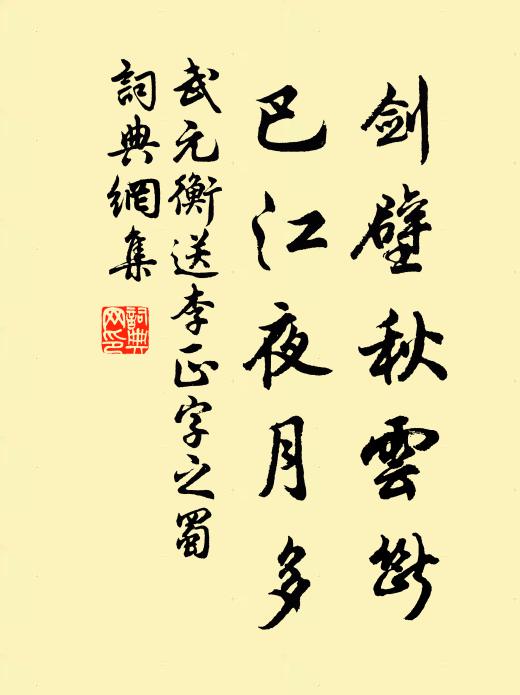 剑壁秋雲斷
巴江夜月多
武元衡送李正字之蜀
詞典網集
詞典网印